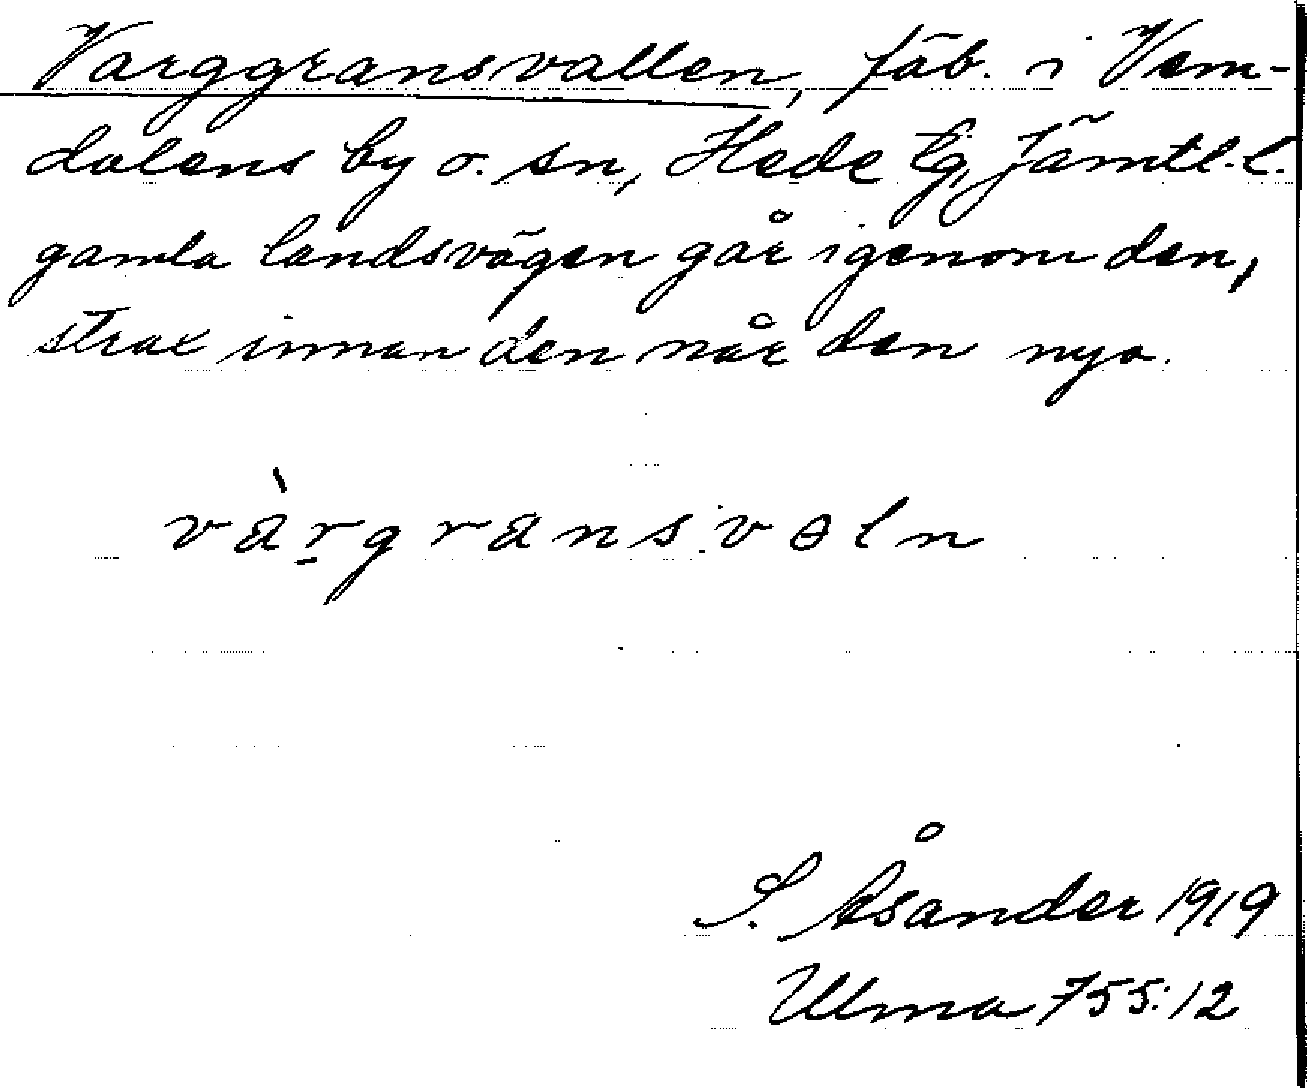 Varggransvallen, fäb. i Vem-
dalens by o. sn, Hede tg, Jämtl. l.
gamla landsvägen går igenom den,
strax innan den når den nya.
vàr̠gransvaln
S. Åsander 1919
Ulma 755:12